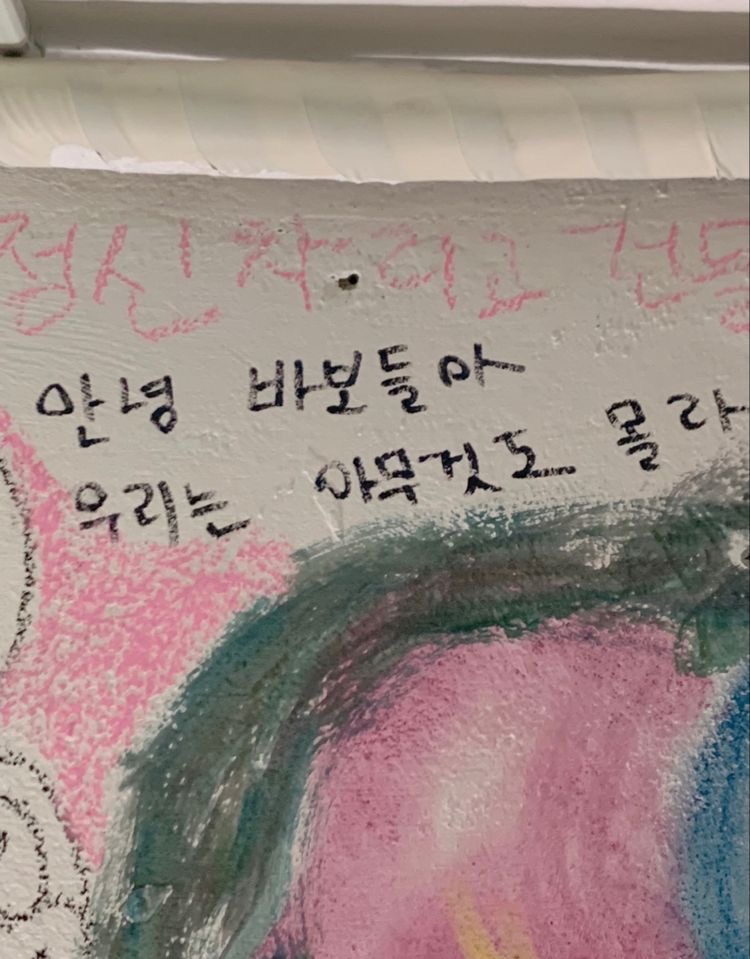 정신 차리고
안녕 바보들아
우리는 아무것도 몰라